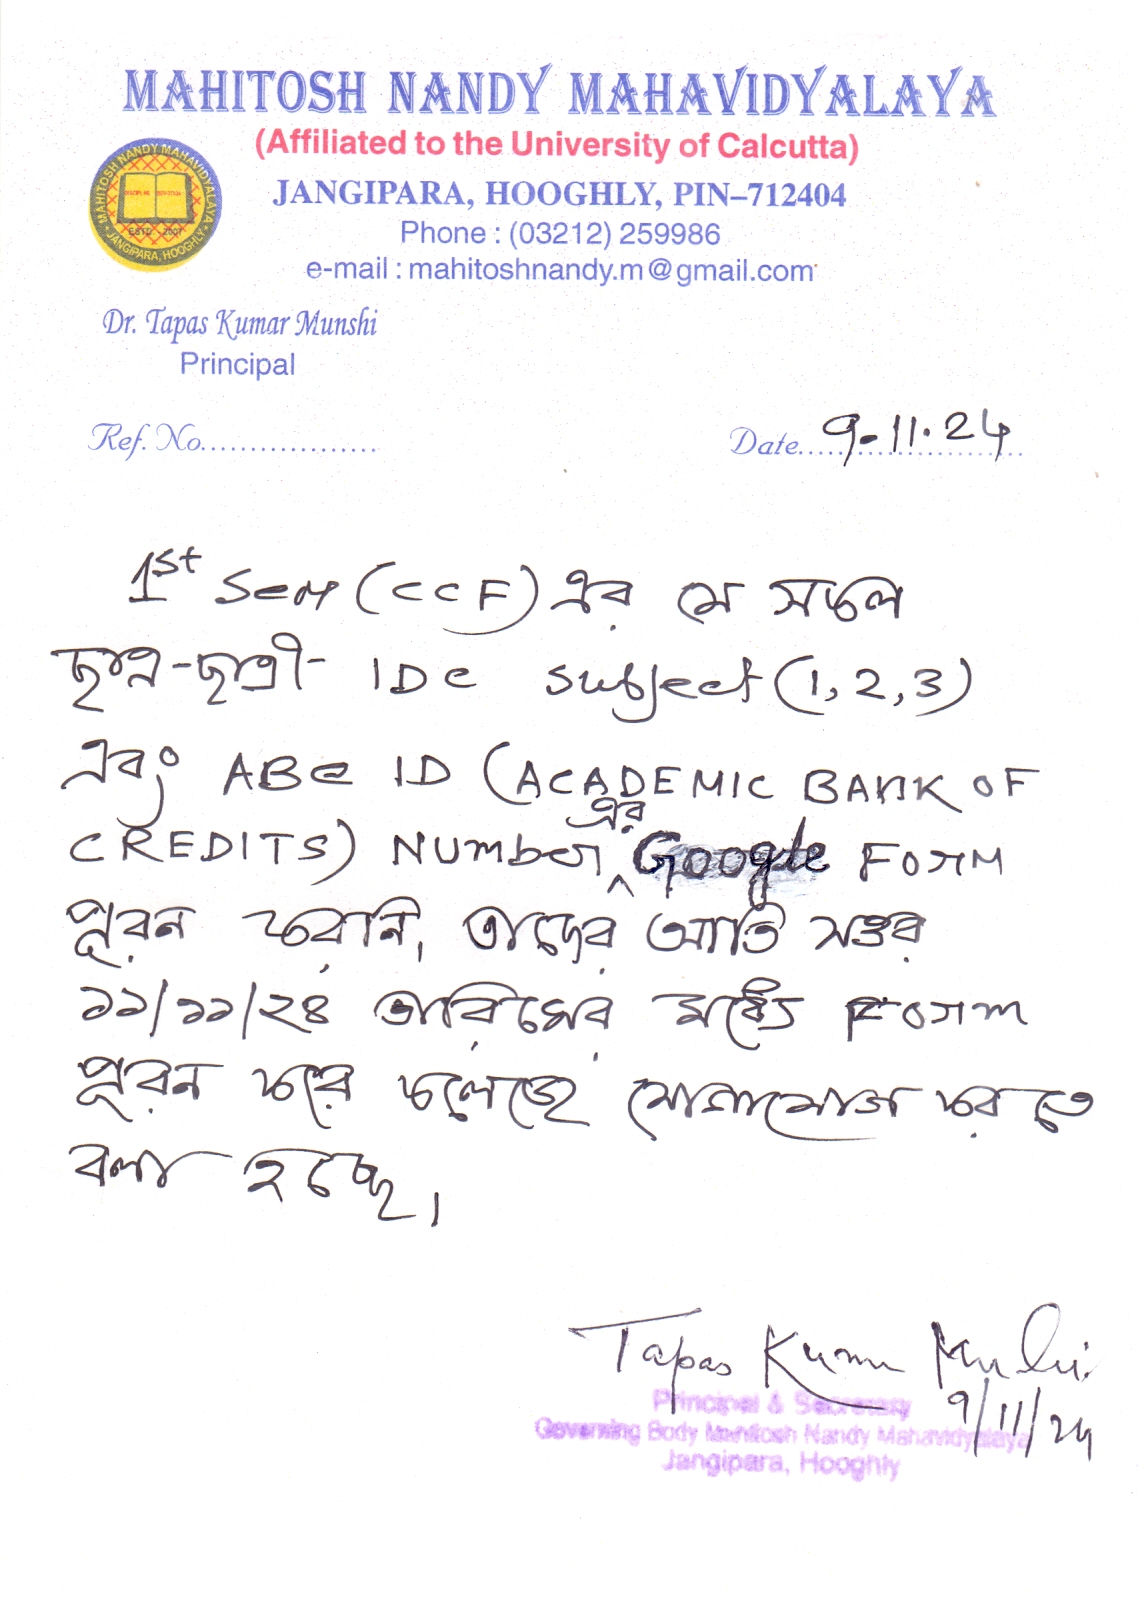 MAHITOSH NANDY MAHAVIDYALAYA
(Affiliated to the University of Calcutta)
JANGIPARA, HOOGHLY, PIN–712404
Phone : (03212) 259986
e-mail : mahitoshnandy.m@gmail.com
MAHITOSH NANDY MAHAVIDYALAYA
ESTD - 2007
JANGIPARA, HOOGHLY
Dr. Tapas Kumar Munshi
Principal
Ref. No..................
Date.... 9.11.24
1st Sem (CCF) এর যে সকল
ছাত্র-ছাত্রী- IDC subject (1,2,3)
এবং ABC ID (ACADEMIC BANK OF
CREDITS) Number এর Google Form
পূরন করনি, তাদের অতি সত্তর
১১/১১/২৪ তারিখের মধ্যে Form
পূরন করে কলেজে যোগাযোগ করতে
বলা হচ্ছে।
Tapas Kumar Munshi
9/11/24
Principal & Secretary
Governing Body Mahitosh Nandy Mahavidyalaya
Jangipara, Hooghly